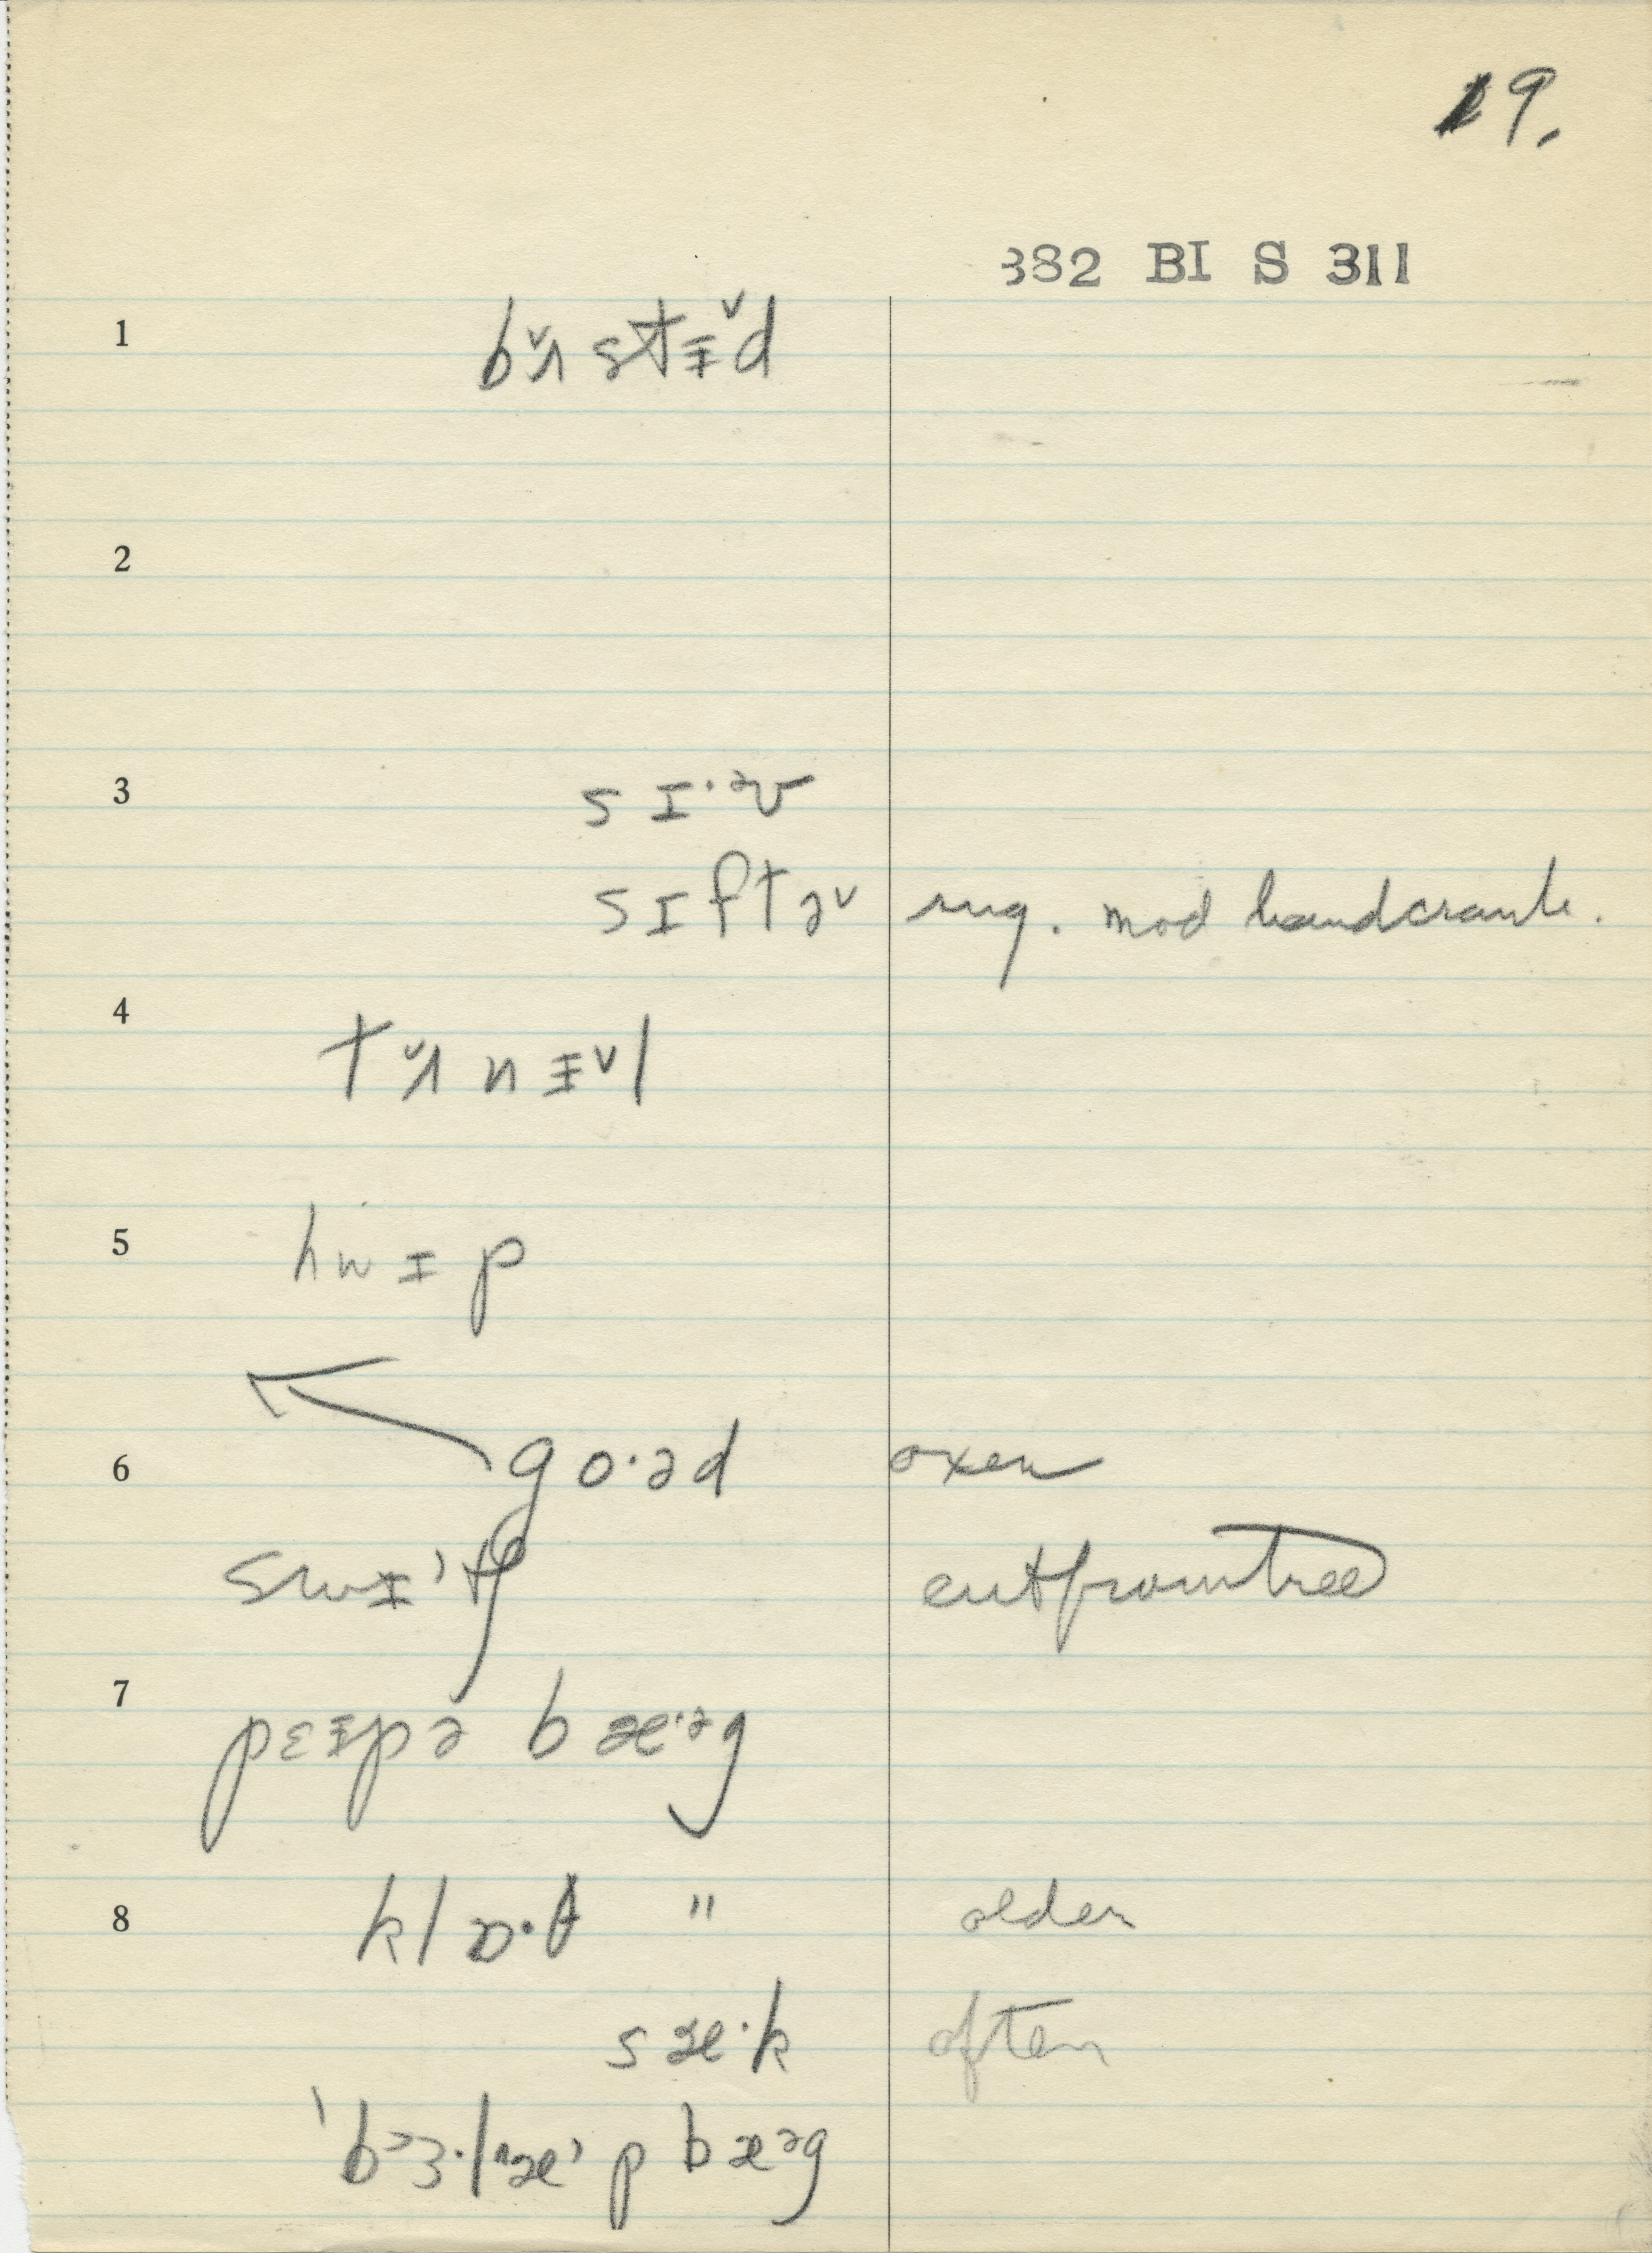 19.
382 BI S 311
1 bʌ̌stɨ̌d
2
3 sɪ·ᵊv
sɪftə˅ sug. mod handcrank.
4 tʌ̌nɨ˅l
5 hwɪp
6 go·əd oxen
swɪ'tʃ cut from tree
7 pɛɪpə bæ·ᵊg
8 klɒ·θ " older
sæ·k often
'bɜ·læ'p bæᵊg